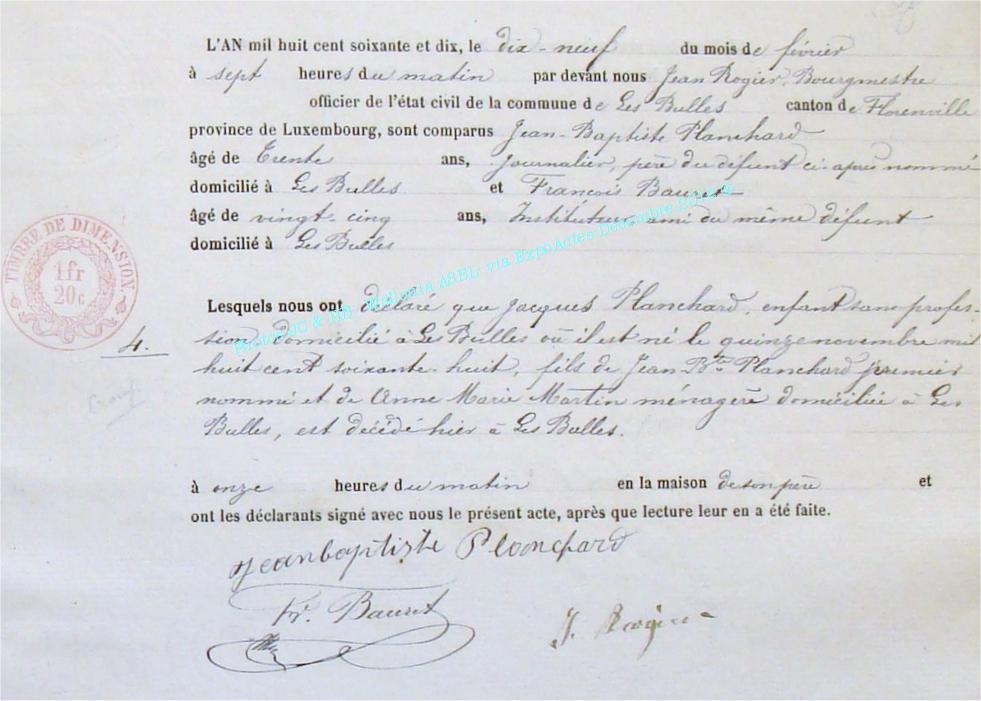 L'AN mil huit cent soixante et dix, le dix-neuf du mois de février
à sept heures du matin par devant nous Jean Rogier, Bourgmestre
officier de l'état civil de la commune de Les Bulles canton de Florenville
province de Luxembourg, sont comparus Jean-Baptiste Planchard
âgé de Trente ans, journalier, père du défunt ci-après nommé
domicilié à Les Bulles et François Bauret
âgé de vingt-cinq ans, Instituteur, ami du même défunt
domicilié à Les Bulles
TIMBRE DE DIMENSION.
1fr
20c
4.
Lesquels nous ont déclaré que Jacques Planchard, enfant sans profes-
sion, domicilié à Les Bulles où il est né le quinze novembre mil
huit cent soixante-huit, fils de Jean Bte Planchard premier
nommé et de Anne Marie Martin ménagère domiciliée à Les
Bulles, est décédé hier à Les Bulles.
à onze heures du matin en la maison de son père et
ont les déclarants signé avec nous le présent acte, après que lecture leur en a été faite.
jeanbaptiste Planchard
Fr. Bauret
J. Rogier
Photos JC & HB - Wallonia ASBL via ExpoActes Décembre